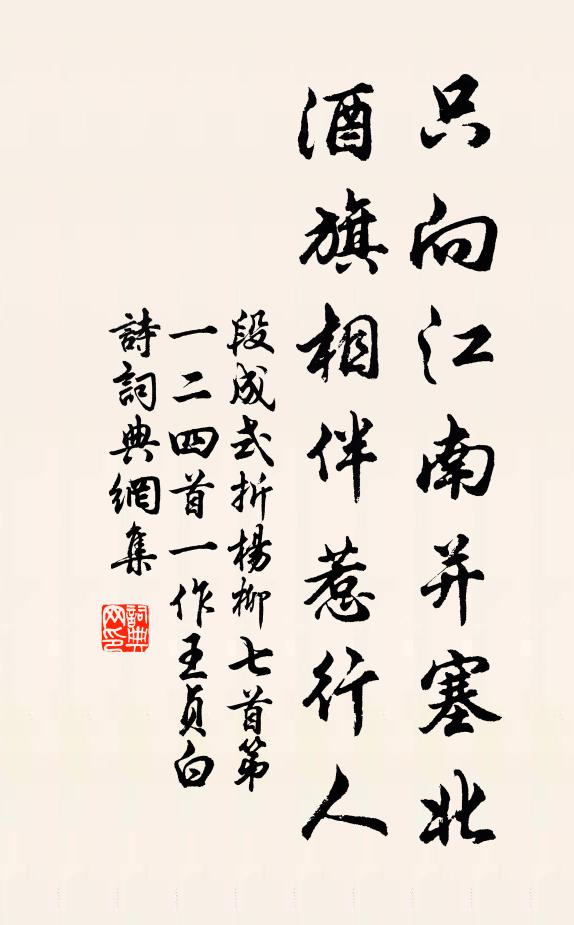 只向江南并塞北
酒旗相伴惹行人
段成式折楊柳七首第
一二四首一作王贞白
詩詞典網集
詞典
网印